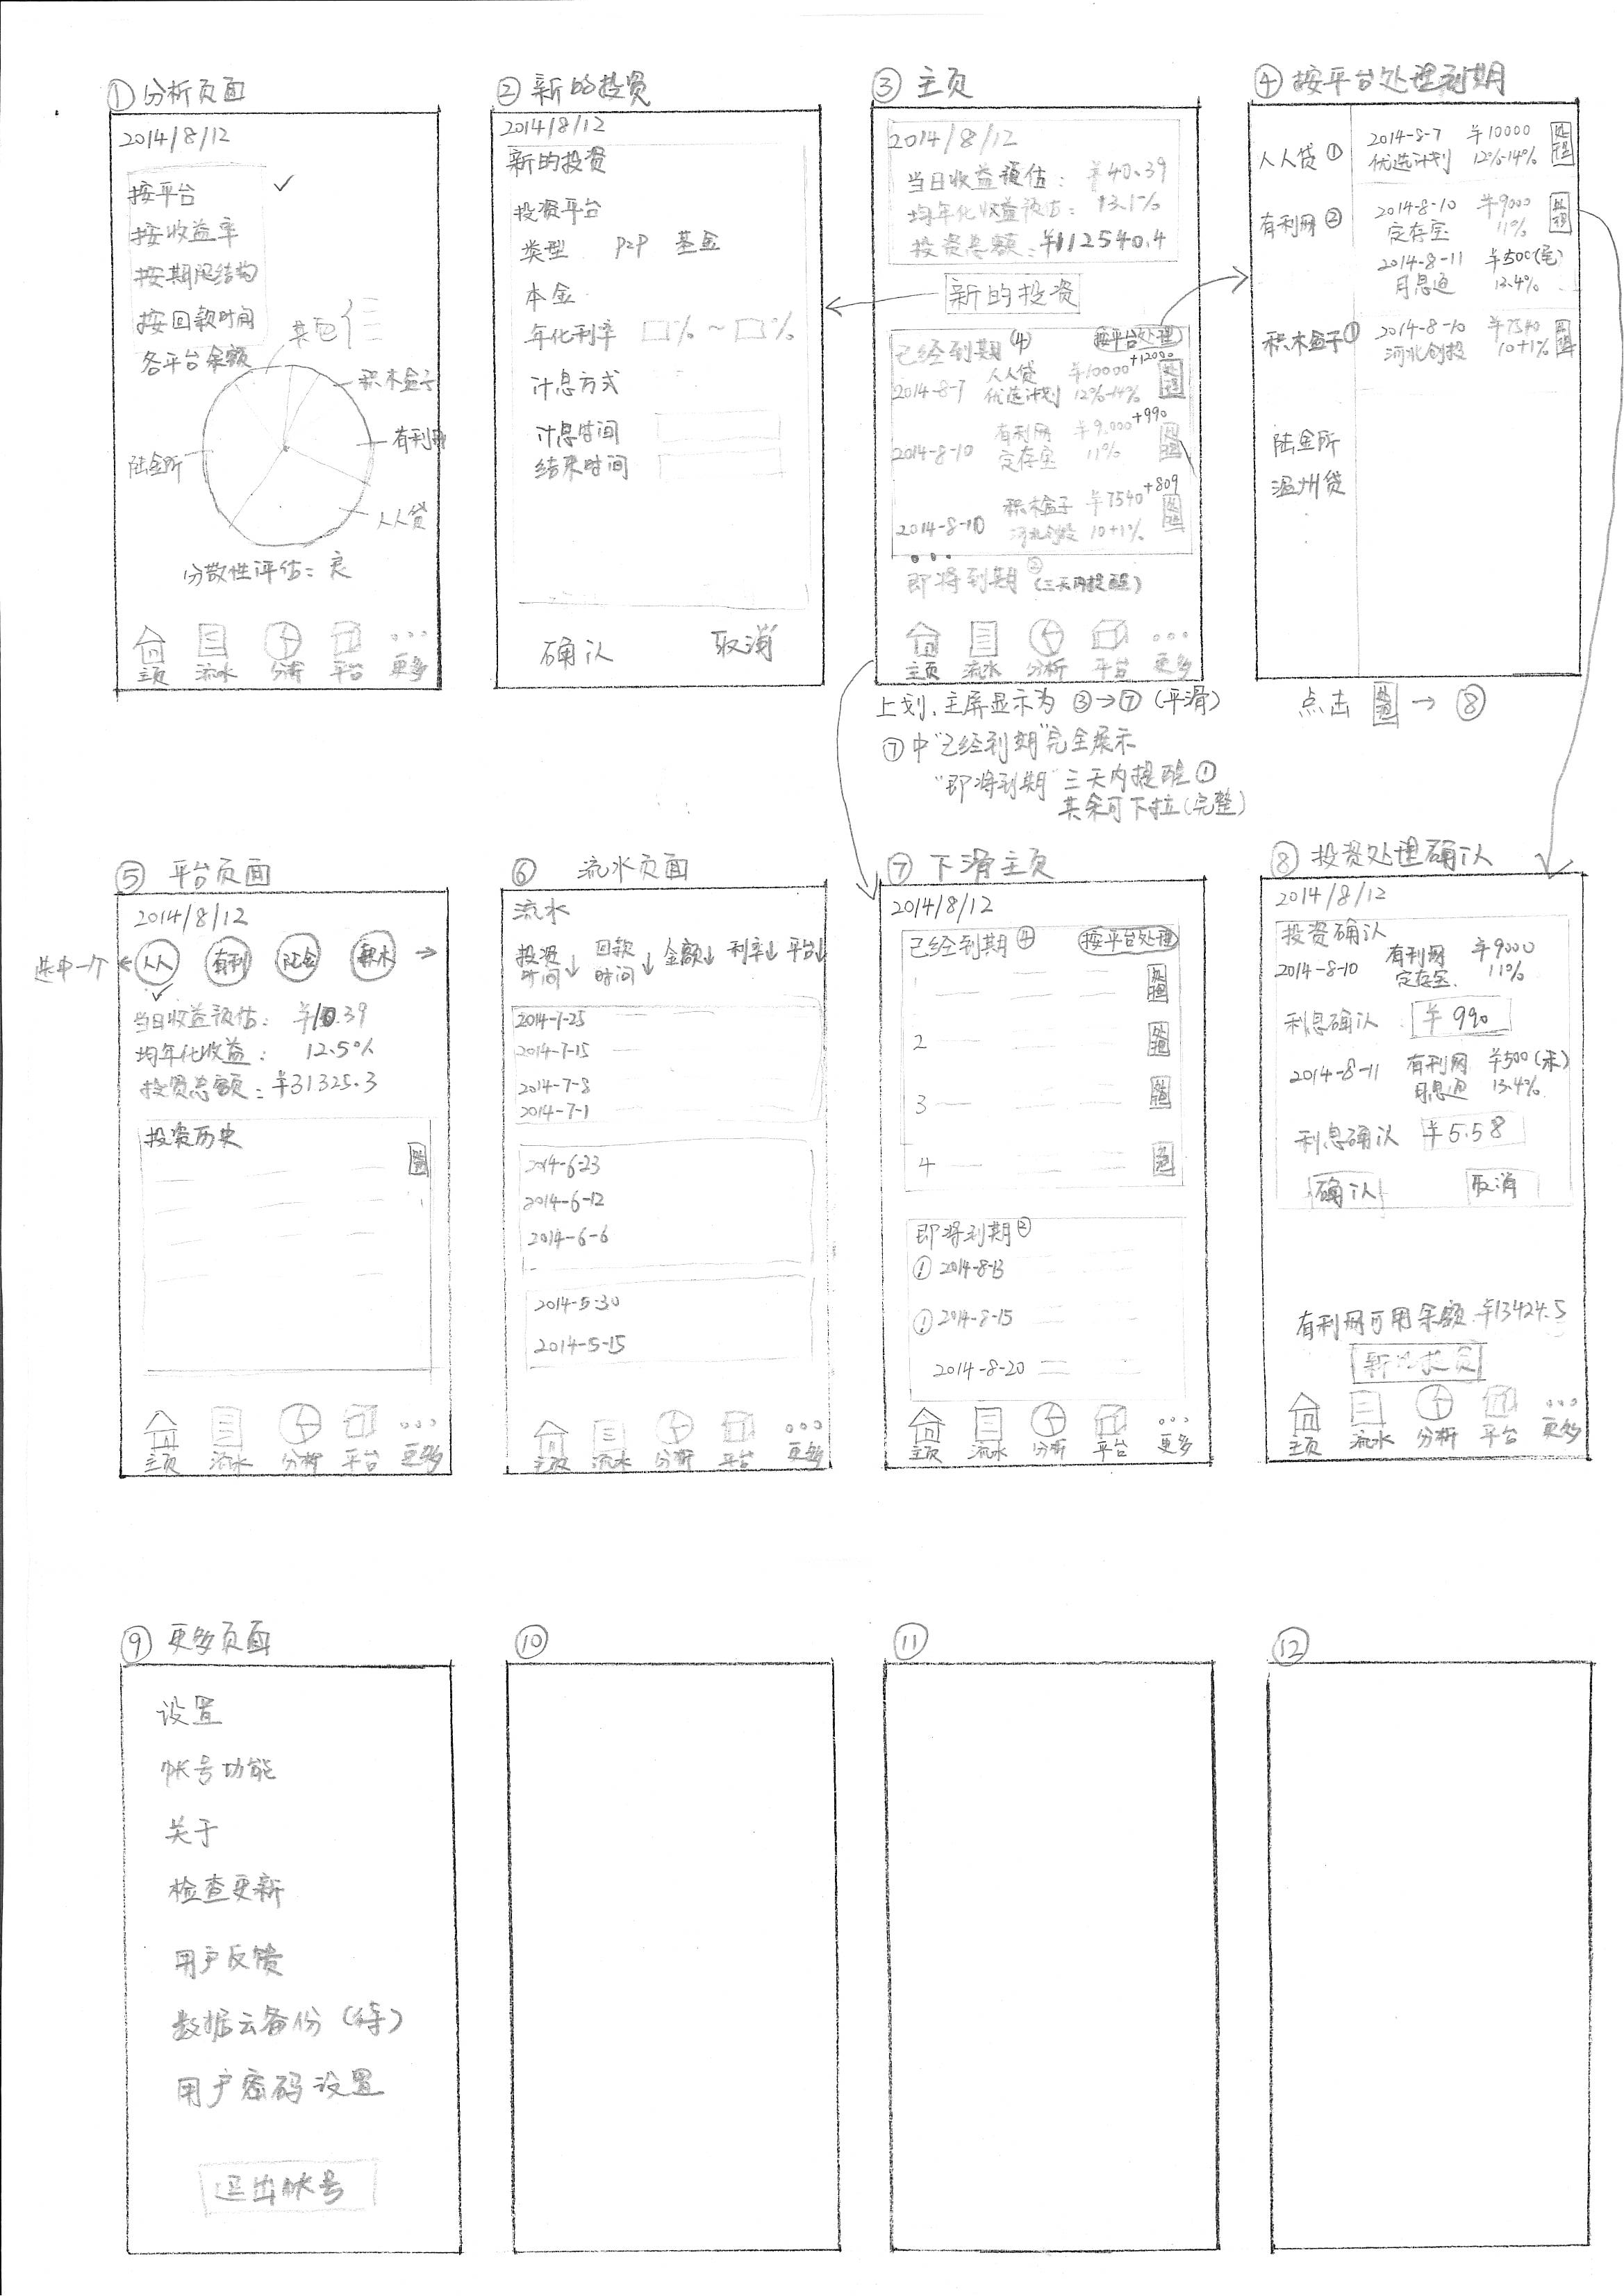 ① 分析页面
2014/8/12
按平台 ✓
按收益率
按期限结构
按回款时间
各平台余额
其它
积木盒子
有利网
陆金所
人人贷
分散性评估：良
主页 流水 分析 平台 更多
② 新的投资
2014/8/12
新的投资
投资平台
类型 P2P 基金
本金
年化利率 % ~ %
计息方式
计息时间
结束时间
确认 取消
③ 主页
2014/8/12
当日收益预估：¥40.39
均年化收益预估：13.1%
投资总额：¥112540.4
新的投资
已经到期 (4) 按平台处理
2014-8-7 人人贷 ¥10000
优选计划 12%-14% 处理
2014-8-10 有利网 ¥9000 +990
定存宝 11% 处理
2014-8-10 积木盒子 ¥7540 +809
河北创投 10+1% 处理
即将到期 ② (三天内提醒)
主页 流水 分析 平台 更多
上划，主屏显示为 ③→⑦ (平滑)
⑦中"已经到期"完全展示
"即将到期"三天内提醒 ①
其余可下拉(完整)
④ 按平台处理到期
人人贷 ① 2014-8-7 ¥10000 处理
优选计划 12%-14%
有利网 ② 2014-8-10 ¥9000 处理
定存宝 11%
2014-8-11 ¥500
月息通 13.4%
积木盒子 ① 2014-8-10 ¥7540 处理
河北创投 10+1%
陆金所
温州贷
点击 处理 → ⑧
⑤ 平台页面
2014/8/12
选中一个 ← 人人 有利 陆金 积木 →
当日收益预估：¥10.39
均年化收益：12.5%
投资总额：¥31325.3
投资历史
处理
主页 流水 分析 平台 更多
⑥ 流水页面
流水
投资时间↓ 回款时间↓ 金额↓ 利率↓ 平台↓
2014-7-25
2014-7-15
2014-7-8
2014-7-1
2014-6-23
2014-6-12
2014-6-6
2014-5-30
2014-5-15
主页 流水 分析 平台 更多
⑦ 下滑主页
2014/8/12
已经到期 ④ 按平台处理
1 处理
2 处理
3 处理
4 处理
即将到期 ②
① 2014-8-13
① 2014-8-15
2014-8-20
主页 流水 分析 平台 更多
⑧ 投资处理确认
2014/8/12
投资确认
2014-8-10 有利网 ¥9000
定存宝 11%
利息确认 ¥990
2014-8-11 有利网 ¥500
月息通 13.4%
利息确认 ¥5.58
确认 取消
有利网可用余额 ¥13424.5
新的投资
主页 流水 分析 平台 更多
⑨ 更多页面
设置
帐号功能
关于
检查更新
用户反馈
数据云备份 (待)
用户密码设置
退出帐号
⑩
⑪
⑫